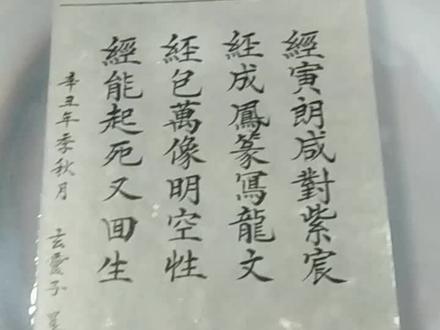 經寅朗咸對紫宸
經成鳳篆寫龍文
經包萬像明空性
經能起死又回生
辛丑年季秋月 玄靈子